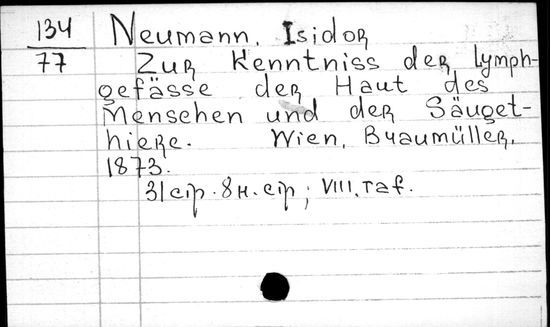 134
77
Neumann, Isidor
Zur Kenntniss der Lymph-
gefässe der Haut des
Menschen und der Säuget-
hiere. Wien, Braumüller,
1873.
31 стр. 8н. стр; VIII, Taf.